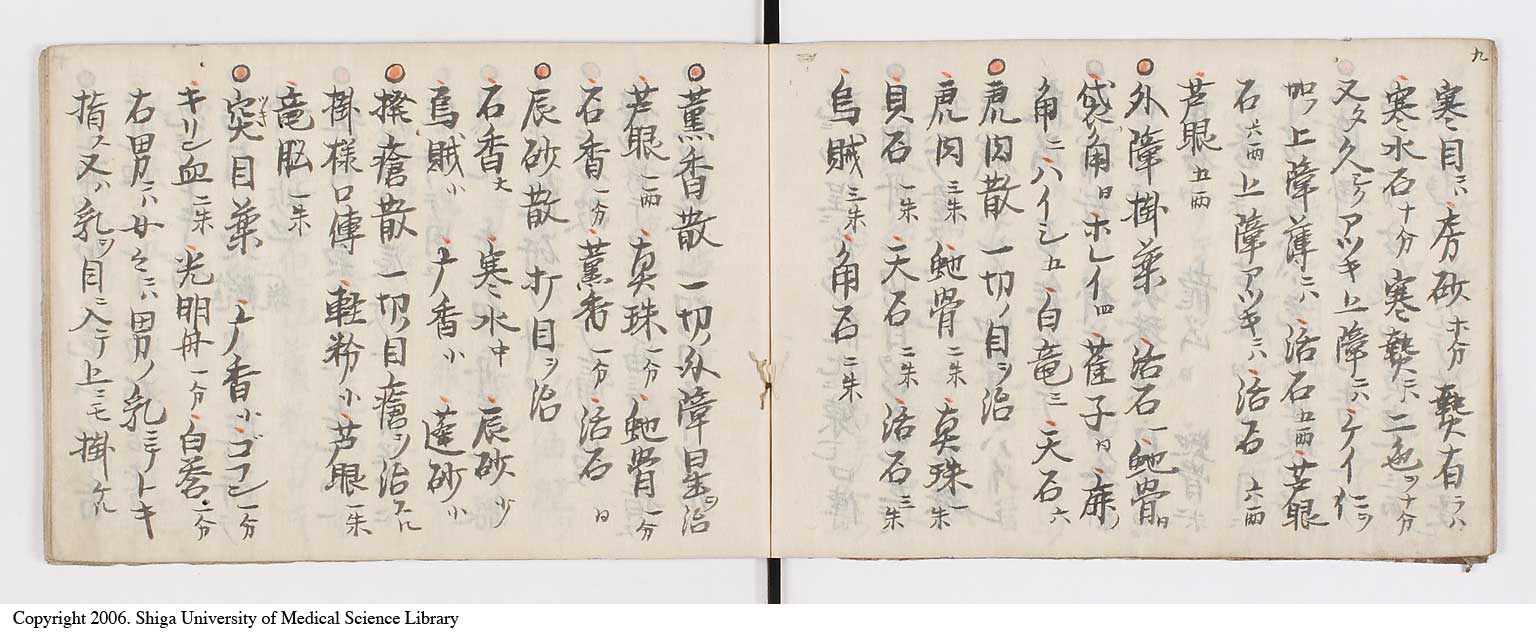 九
寒目ニハ、磠砂ホ分 𤍠有ラハ
寒水石十分 寒𤍠ニハ二色ヲ十分
又タ久シクアツキ上障ニハケイ仁ニツ
加ヘ上障薄ニハ 活石五両 芦眼
石六両 上障アツキニハ 活石 六両
芦眼五両
外障掛薬 活石一 虵骨日
袋角日 ホレイ四 崔子日 麻ノ
角二 ハイシ五 白竜三 天石六
虎肉散 一切ノ目ヲ治
虎肉三朱 虵骨二朱 真珠一朱
貝石一朱 天石二朱 活石三朱
烏賊三朱 角石二朱
薫香散 一切ノ外障星ヲ治
芦眼一両 真珠一分 虵骨一分
石香一分 薫香一分 活石日
辰砂散 打目ヲ治
石香大 寒水中 辰砂少
烏賊小 丁香小 蓬砂小
撥瘡散 一切ノ目瘡ヲ治スル
掛様口傳 軽粉小 芦眼一朱
竜脳一朱
突目薬 丁香小 ゴフン一分
キリン血二朱 光明丹一分 白荅一分
右男ニハ女 女ニハ男ノ乳ニテトキ
指ス又ハ乳ヲ目ニ入テ上ニモ掛ケル
Copyright 2006. Shiga University of Medical Science Library